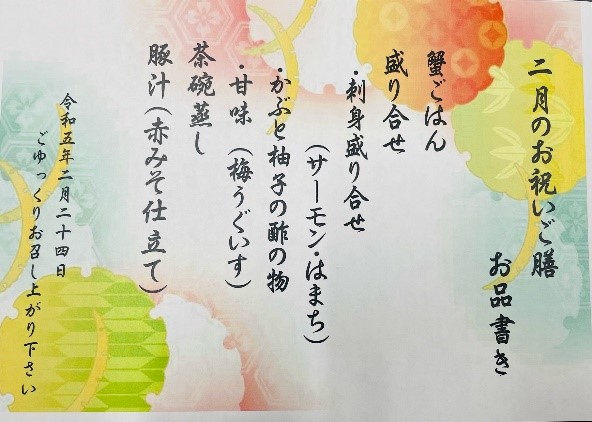 二月のお祝いご膳
お品書き
蟹ごはん
盛り合せ
・刺身盛り合せ
（サーモン・はまち）
・かぶと柚子の酢の物
・甘味（梅うぐいす）
茶碗蒸し
豚汁（赤みそ仕立て）
令和五年二月二十四日
ごゆっくりお召し上がり下さい